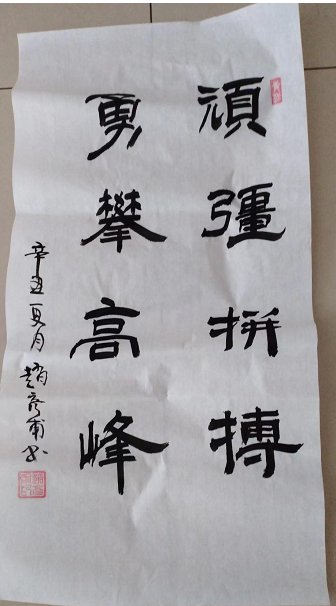 頑彊拼搏
勇攀高峰
辛丑夏月趙彥甫书